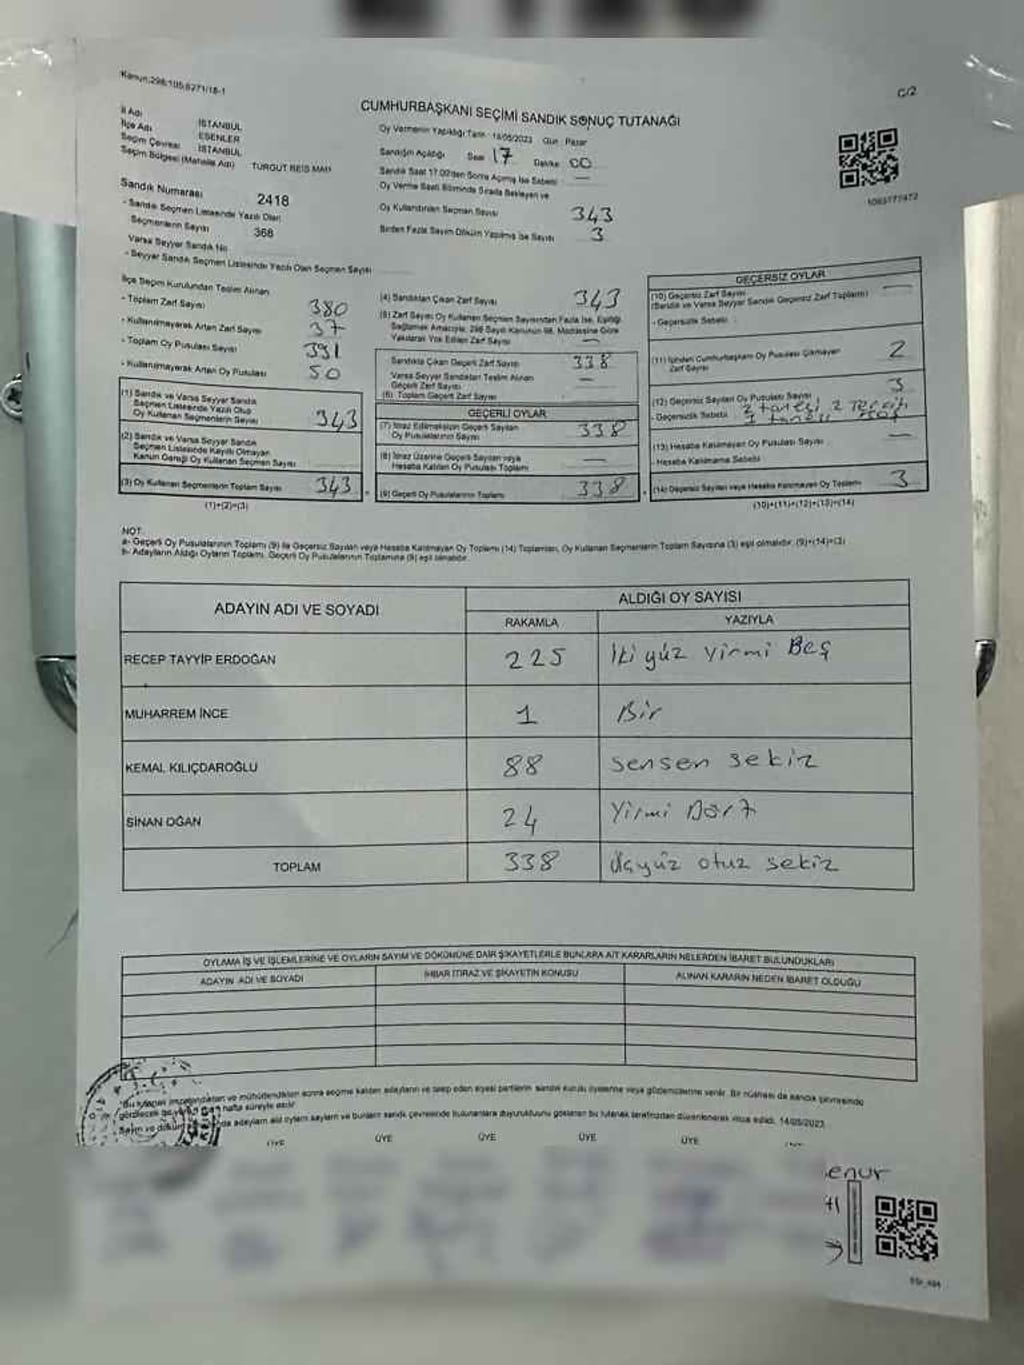 Kanun:298;105;6271/18-1
C/2
CUMHURBAŞKANI SEÇİMİ SANDIK SONUÇ TUTANAĞI
İl Adı İSTANBUL
İlçe Adı ESENLER
Seçim Çevresi İSTANBUL
Seçim Bölgesi (Mahalle Adı) TURGUT REİS MAH
Sandık Numarası 2418
- Sandık Seçmen Listesinde Yazılı Olan
Seçmenlerin Sayısı 368
Varsa Seyyar Sandık No
- Seyyar Sandık Seçmen Listesinde Yazılı Olan Seçmen Sayısı
Oy Vermenin Yapıldığı Tarih : 14/05/2023 Gün : Pazar
Sandığın Açıldığı Saat 17 Dakika 00
Sandık Saat 17.00'den Sonra Açılmış İse Sebebi —
Oy Verme Saati Bitiminde Sırada Bekleyen ve
Oy Kullandırılan Seçmen Sayısı 343
Birden Fazla Sayım Döküm Yapılmış İse Sayısı 3
1063777472
İlçe Seçim Kurulundan Teslim Alınan
- Toplam Zarf Sayısı 380
- Kullanılmayarak Artan Zarf Sayısı 37
- Toplam Oy Pusulası Sayısı 391
- Kullanılmayarak Artan Oy Pusulası 50
(1) Sandık ve Varsa Seyyar Sandık
Seçmen Listesinde Yazılı Olup
Oy Kullanan Seçmenlerin Sayısı 343
(2) Sandık ve Varsa Seyyar Sandık
Seçmen Listesinde Kayıtlı Olmayan
Kanun Gereği Oy Kullanan Seçmen Sayısı
(3) Oy Kullanan Seçmenlerin Toplam Sayısı 343
(1)+(2)=(3)
(4) Sandıktan Çıkan Zarf Sayısı 343
(5) Zarf Sayısı Oy Kullanan Seçmen Sayısından Fazla İse, Eşitliği
Sağlamak Amacıyla, 298 Sayılı Kanunun 98. Maddesine Göre
Yakılarak Yok Edilen Zarf Sayısı —
Sandıkta Çıkan Geçerli Zarf Sayısı 338
Varsa Seyyar Sandıktan Teslim Alınan
Geçerli Zarf Sayısı —
(6) Toplam Geçerli Zarf Sayısı
GEÇERLİ OYLAR
(7) İtiraz Edilmeksizin Geçerli Sayılan
Oy Pusulalarının Sayısı 338
(8) İtiraz Üzerine Geçerli Sayılan veya
Hesaba Katılan Oy Pusulası Toplamı —
(9) Geçerli Oy Pusulalarının Toplamı 338
GEÇERSİZ OYLAR
(10) Geçersiz Zarf Sayısı —
(Sandık ve Varsa Seyyar Sandık Geçersiz Zarf Toplamı)
- Geçersizlik Sebebi :
(11) İçinden Cumhurbaşkanı Oy Pusulası Çıkmayan
Zarf Sayısı 2
(12) Geçersiz Sayılan Oy Pusulası Sayısı 3
- Geçersizlik Sebebi 2 tanesi 2 Tercih
(13) Hesaba Katılmayan Oy Pusulası Sayısı —
- Hesaba Katılmama Sebebi
(14) Geçersiz Sayılan veya Hesaba Katılmayan Oy Toplamı 3
(10)+(11)+(12)+(13)=(14)
NOT:
a- Geçerli Oy Pusulalarının Toplamı (9) ile Geçersiz Sayılan veya Hesaba Katılmayan Oy Toplamı (14) Toplamları, Oy Kullanan Seçmenlerin Toplam Sayısına (3) eşit olmalıdır. (9)+(14)=(3)
b- Adayların Aldığı Oyların Toplamı, Geçerli Oy Pusulalarının Toplamına (9) eşit olmalıdır.
ADAYIN ADI VE SOYADI ALDIĞI OY SAYISI
RAKAMLA YAZIYLA
RECEP TAYYİP ERDOĞAN 225 iki yüz yirmi Beş
MUHARREM İNCE 1 Bir
KEMAL KILIÇDAROĞLU 88 sensen sekiz
SİNAN OĞAN 24 Yirmi Dört
TOPLAM 338 üçyüz otuz sekiz
OYLAMA İŞ VE İŞLEMLERİNE VE OYLARIN SAYIM VE DÖKÜMÜNE DAİR ŞİKAYETLERLE BUNLARA AİT KARARLARIN NELERDEN İBARET BULUNDUKLARI
ADAYIN ADI VE SOYADI İHBAR İTİRAZ VE ŞİKAYETİN KONUSU ALINAN KARARIN NEDEN İBARET OLDUĞU
"Bu tutanak imzalandıktan ve mühürlendikten sonra seçime katılan adayların ve talep eden siyasi partilerin sandık kurulu üyelerine veya gözlemcilerine verilir. Bir nüshası da sandık çevresinde
görülecek bir yere bir hafta süreyle asılır.
Sayım ve döküm adayların aldığı oyların sayılarını ve bunların sandık çevresinde bulunanlara duyurulduğunu gösteren bu tutanak tarafımızdan düzenlenerek imza edildi. 14/05/2023
ÜYE ÜYE ÜYE ÜYE ÜYE
enur